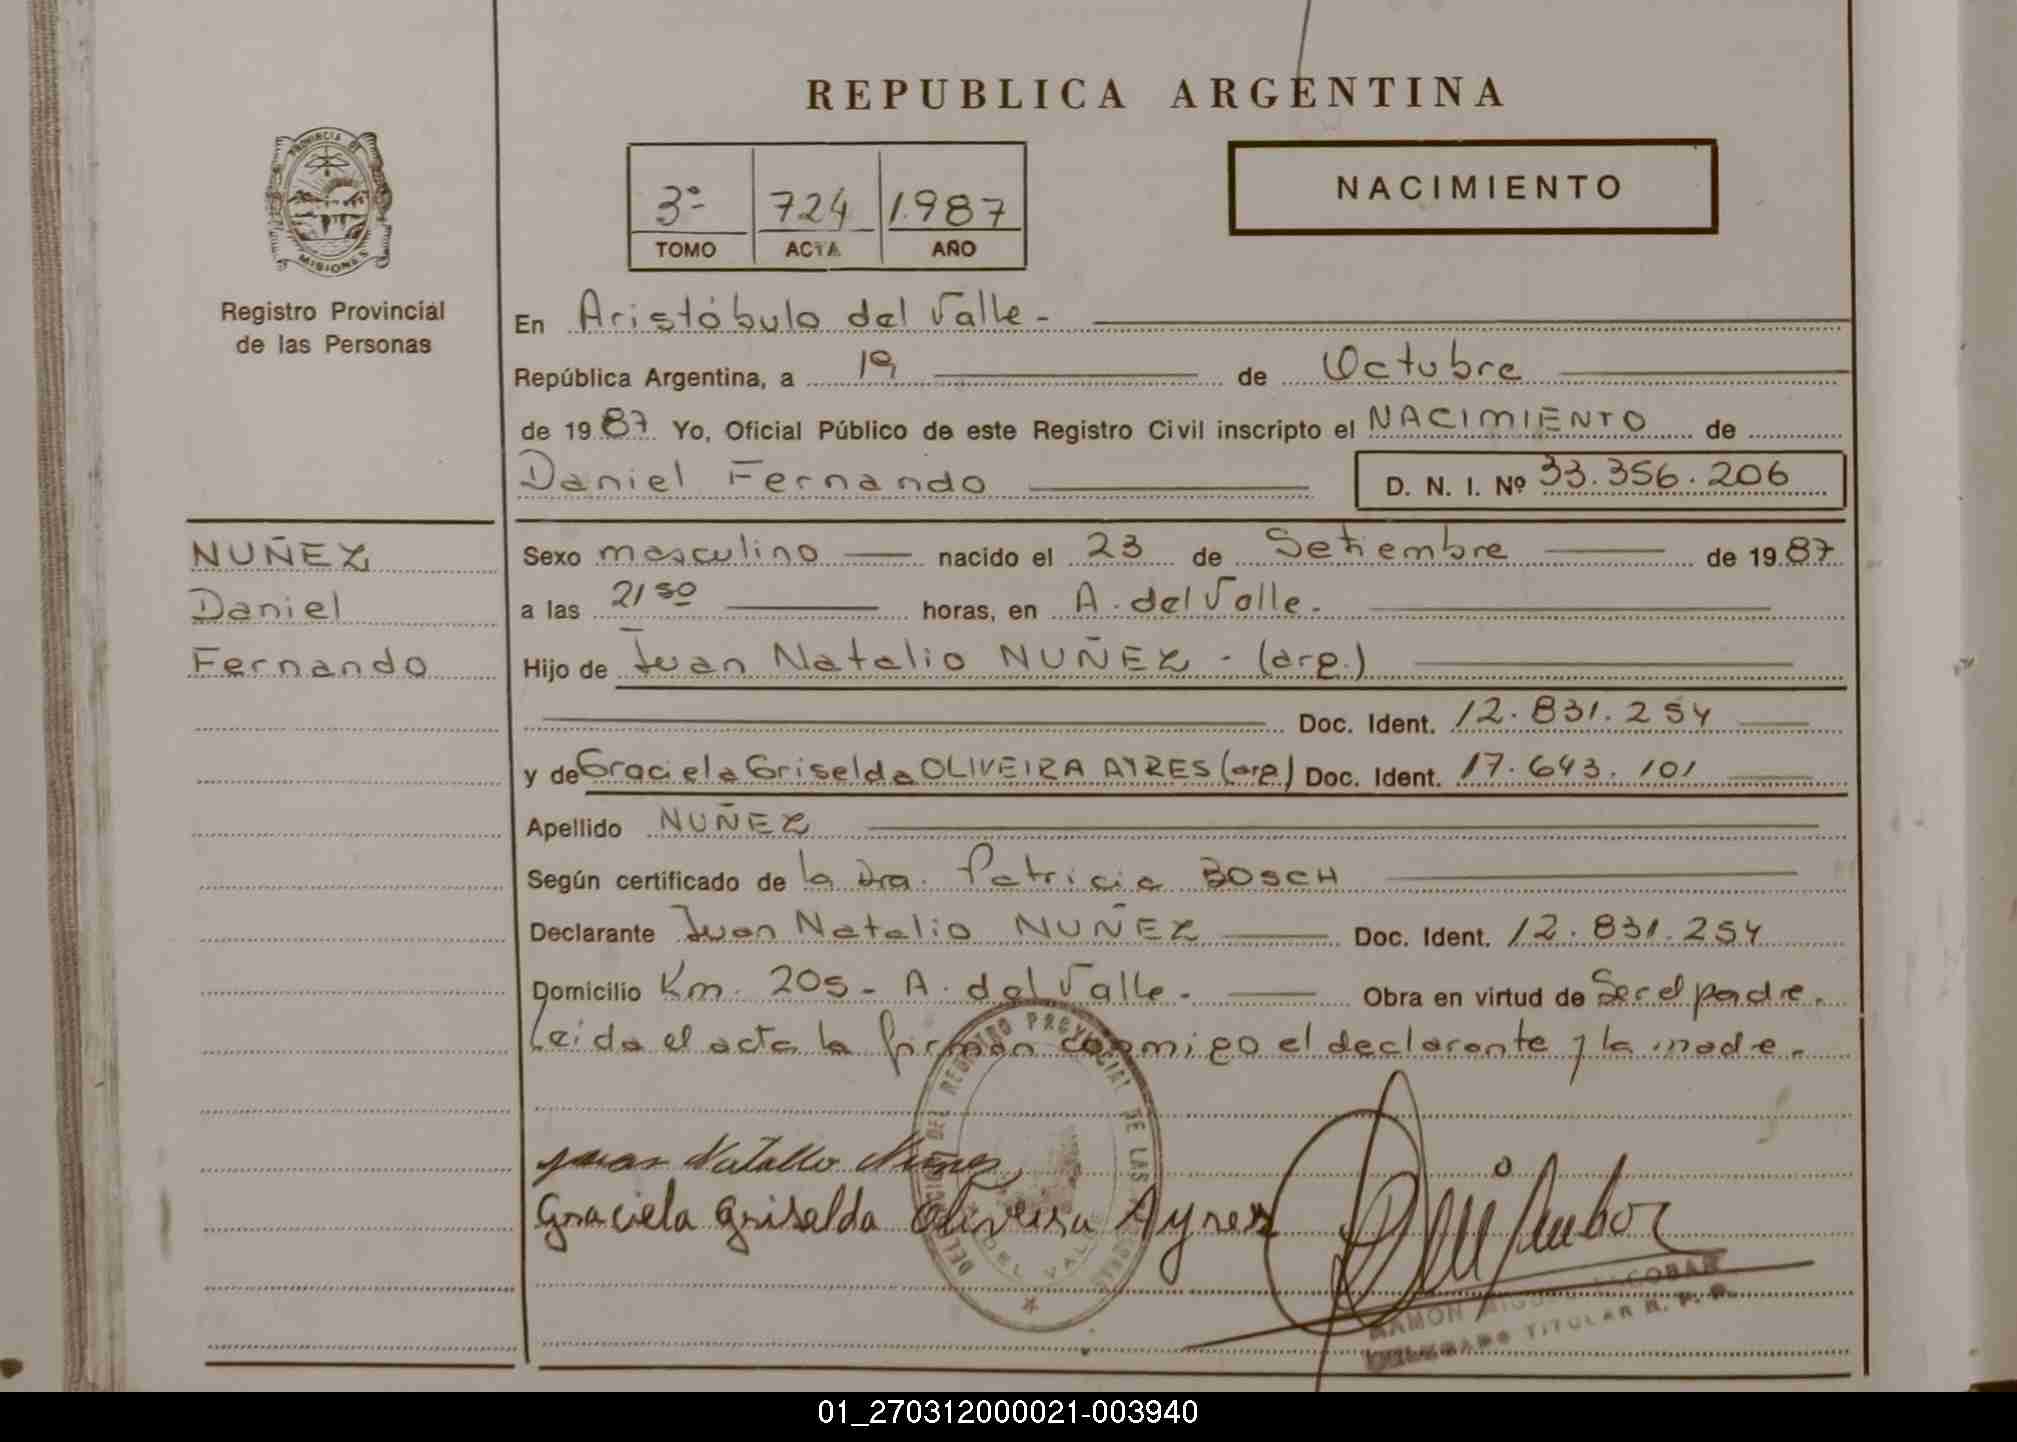 REPUBLICA ARGENTINA
PROVINCIA DE
MISIONES
3º 724 1.987
TOMO ACTA AÑO
NACIMIENTO
Registro Provincial
de las Personas
En Aristóbulo del Valle -
República Argentina, a 19 de Octubre
de 1987 Yo, Oficial Público de este Registro Civil inscripto el NACIMIENTO de
Daniel Fernando D. N. I. Nº 33.356.206
NUÑEZ
Daniel
Fernando
Sexo masculino nacido el 23 de Setiembre de 1987
a las 21 50 horas, en A. del Valle.
Hijo de Juan Natalio NUÑEZ - (arg.)
Doc. Ident. 12.831.254
y de Graciela Griselda OLIVEIRA AYRES (arg) Doc. Ident. 17.643.101
Apellido NUÑEZ
Según certificado de la Dra. Patricia BOSCH
Declarante Juan Natalio NUÑEZ Doc. Ident. 12.831.254
Domicilio Km. 205 - A. del Valle - Obra en virtud de Ser el padre.
Leida el acta la firman conmigo el declarante y la madre.
Juan Natalio Nuñez
Graciela Griselda Oliveira Ayres
DEL REGISTRO PROVINCIAL DE LAS
DEL VALLE
RAMON MIGUEL ESCOBAR
DELEGADO TITULAR R. P. P.
01_270312000021-003940